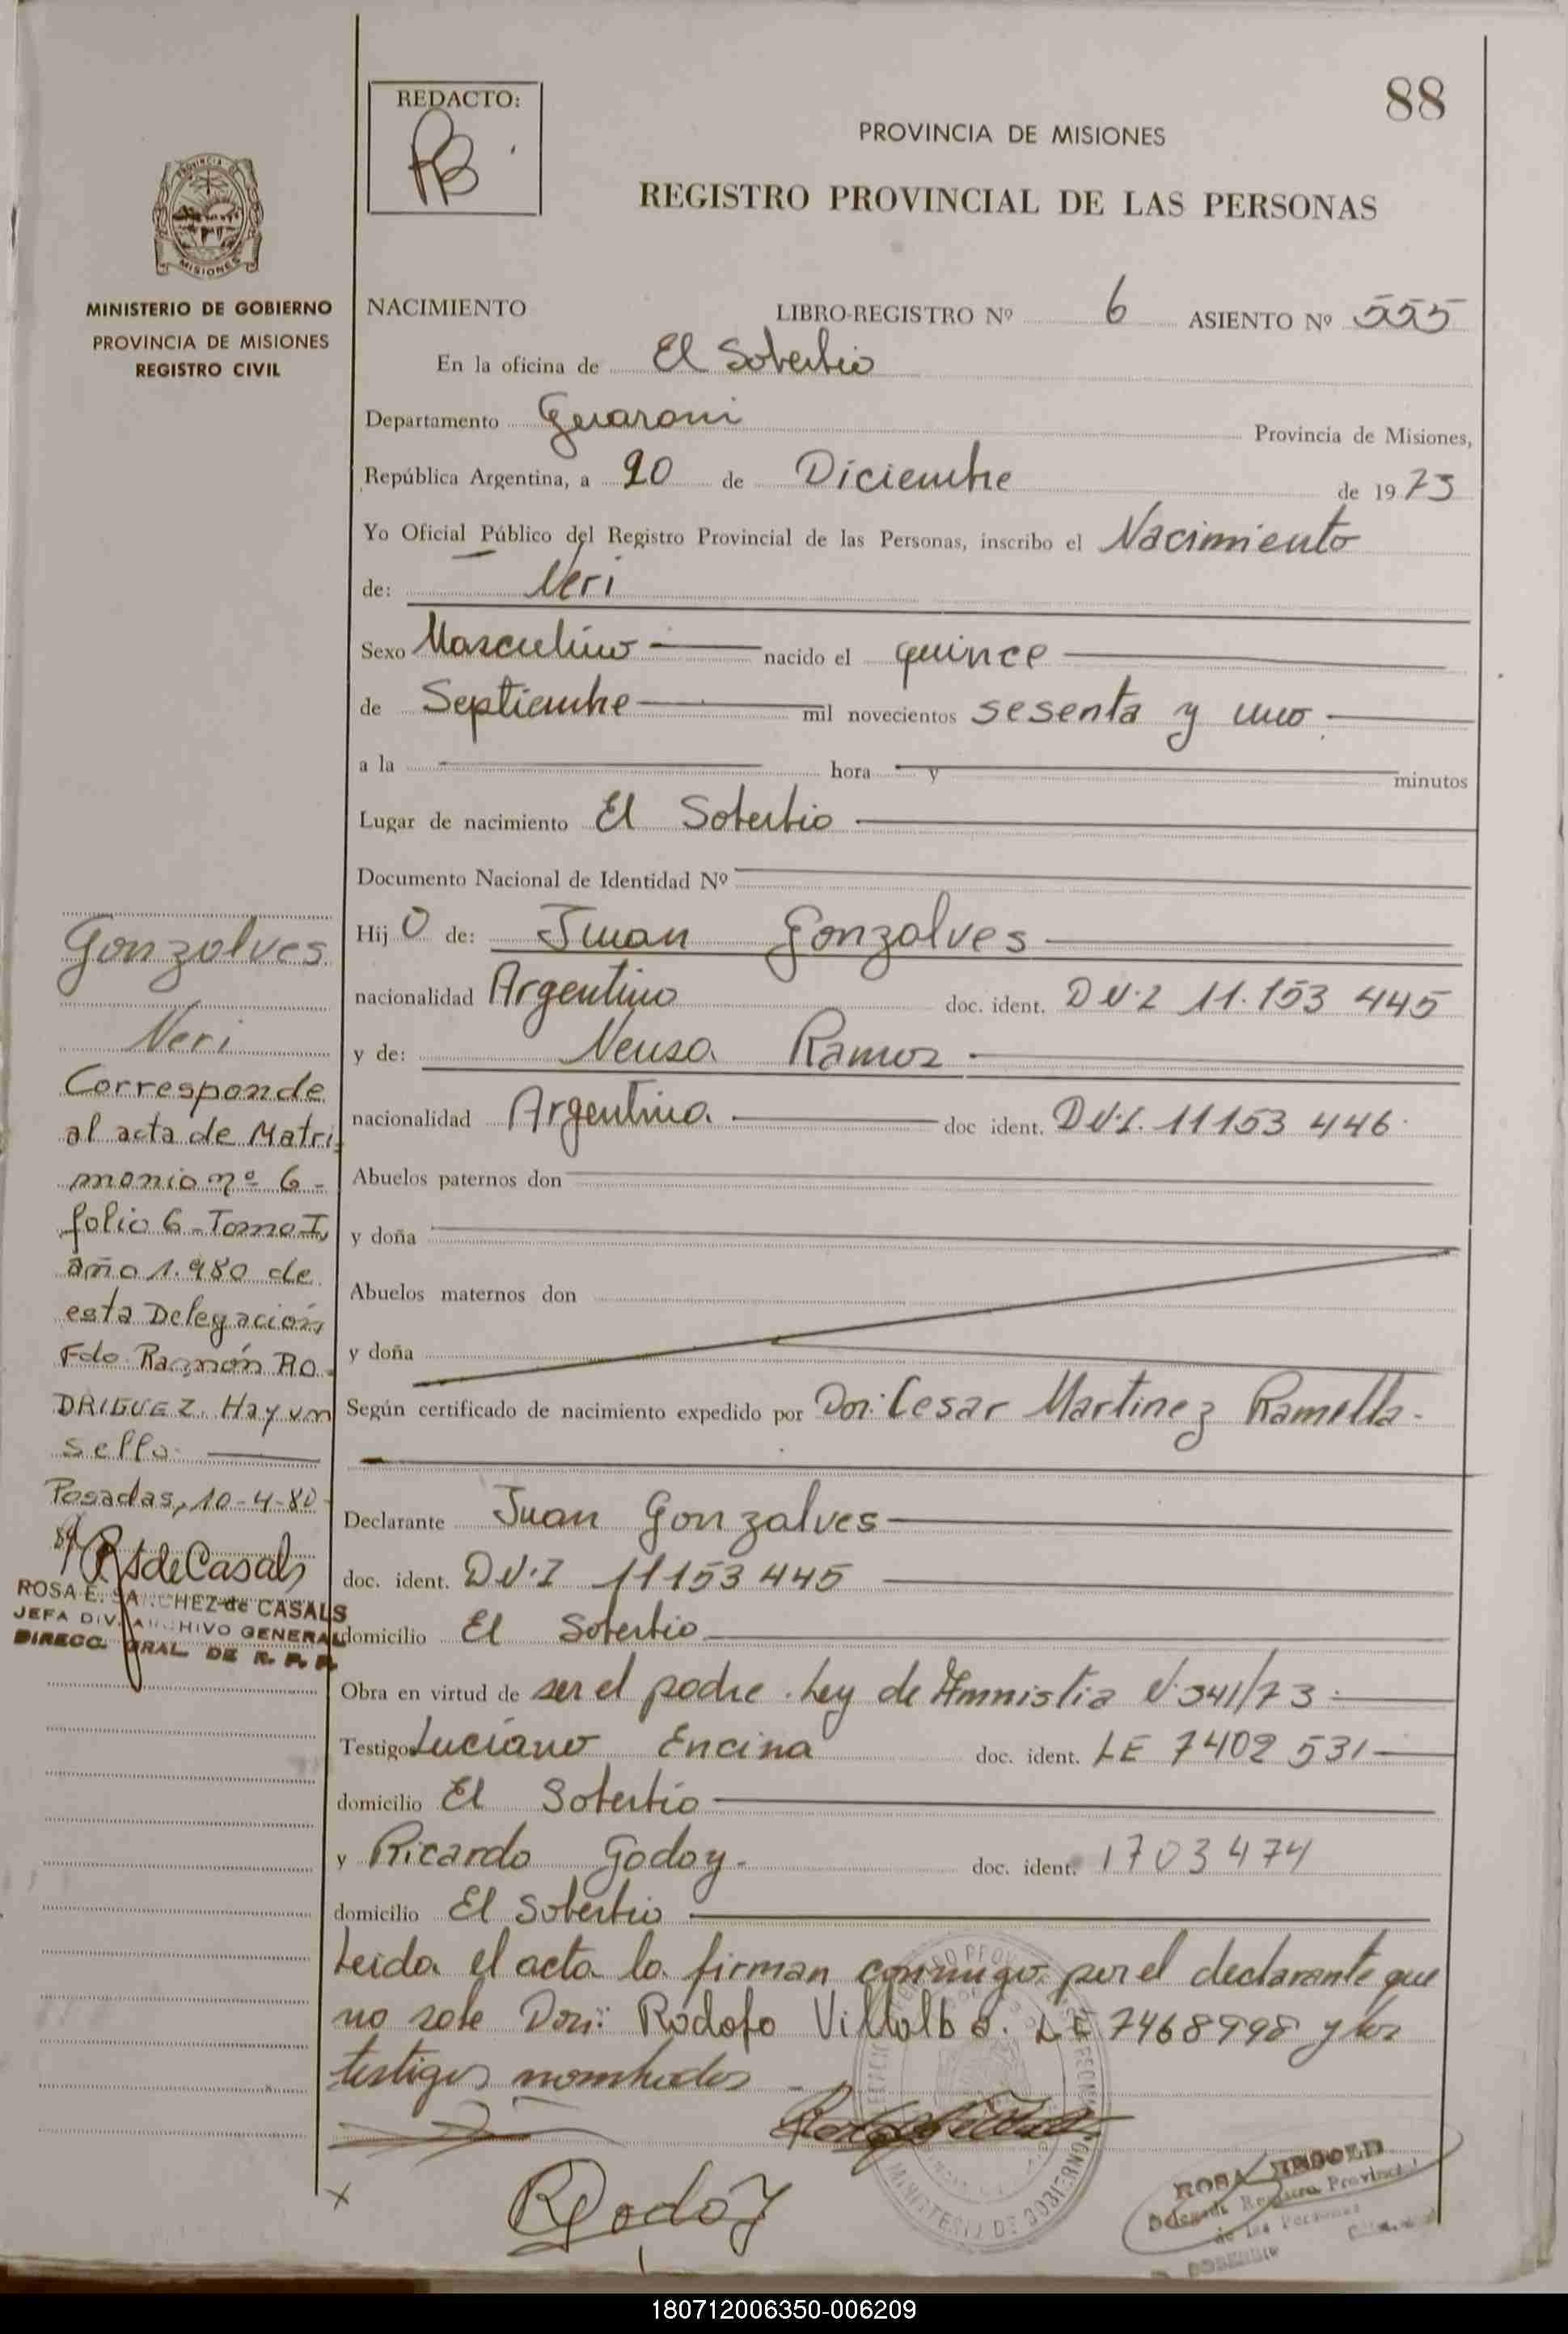 88
REDACTO:
PB
PROVINCIA DE MISIONES
REGISTRO PROVINCIAL DE LAS PERSONAS
MISIONES
MINISTERIO DE GOBIERNO
PROVINCIA DE MISIONES
REGISTRO CIVIL
NACIMIENTO LIBRO-REGISTRO Nº 6 ASIENTO Nº 555
En la oficina de El Soberbio
Departamento Guarani Provincia de Misiones,
República Argentina, a 20 de Diciembre de 1973
Yo Oficial Público del Registro Provincial de las Personas, inscribo el Nacimiento
de: Neri
Sexo Masculino nacido el quince
de Septiembre mil novecientos sesenta y uno.
a la hora y minutos
Lugar de nacimiento El Soberbio
Documento Nacional de Identidad Nº
Hijo de: Juan Gonzalves
nacionalidad Argentino doc. ident. DN.I 11.153 445
y de: Neusa Ramos
nacionalidad Argentina doc ident. DN.I. 11153 446.
Abuelos paternos don
y doña
Abuelos maternos don
y doña
Según certificado de nacimiento expedido por Don: Cesar Martinez Ramella.
Declarante Juan Gonzalves
doc. ident. DN.I 11153445
domicilio El Soberbio
Obra en virtud de ser el padre. Ley de Amnistia N.341/73.
Testigo Luciano Encina doc. ident. LE 7402 531
domicilio El Soberbio
y Ricardo Godoy. doc. ident. 1703474
domicilio El Soberbio
Leida el acta la firman conmigo por el declarante que
no sabe Don: Rodofo Villalba. LE 7468998 y los
testigos nombrados
RGodoy
Gonzalves
Neri
Corresponde
al acta de Matri
monio nº 6-
folio 6-Tomo I,
año 1.980 de
esta Delegación,
Fdo. Ramón RO
DRIGUEZ. Hay un
sello.
Posadas, 10-4-80
RSdeCasals
ROSA E. SANCHEZ de CASALS
JEFA DIV. ARCHIVO GENERAL
DIRECC. GRAL. DE R. P. P.
MINISTERIO DE GOBIERNO
ROSA
Delegada Registro Provincial
de las Personas
180712006350-006209